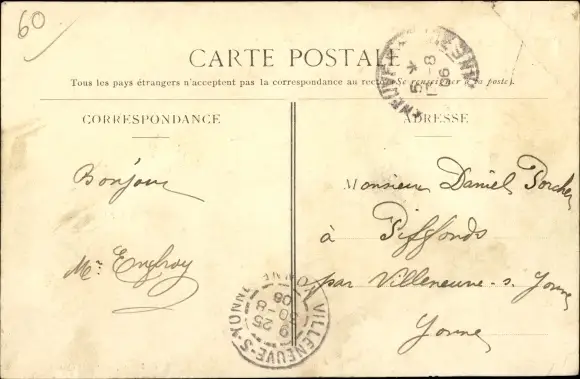 60
CARTE POSTALE
Tous les pays étrangers n'acceptent pas la correspondance au recto (Se renseigner à la poste).
CORRESPONDANCE
ADRESSE
Bonjour
Monsieur Daniel Porcher
à Piffonds
par Villeneuve-s. Yonne
Yonne
VILLENEUVE-S-YONNE
YONNE
9
25
30-8
06
5 *
1-8
06